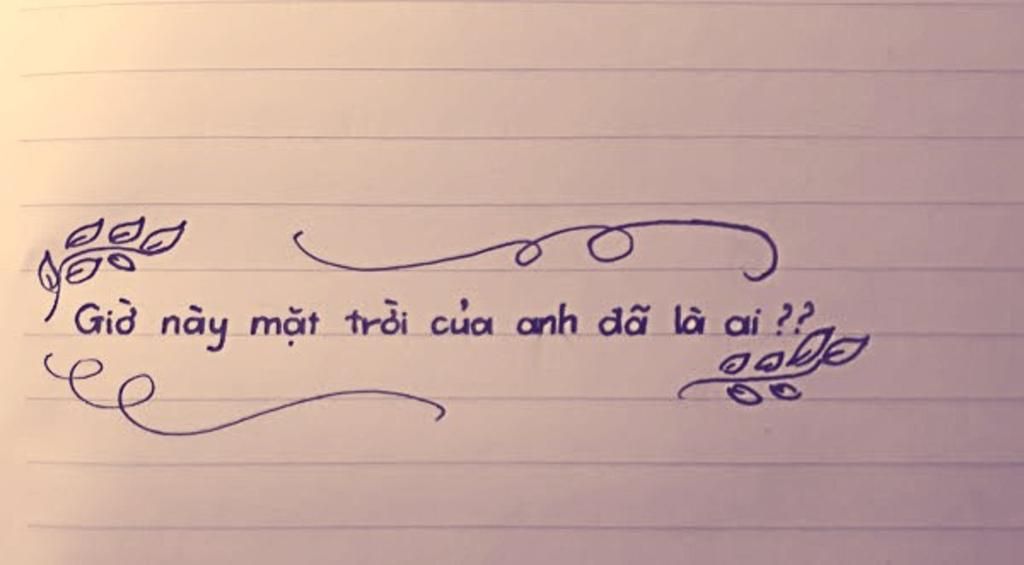 Giờ này mặt trời của anh đã là ai ??